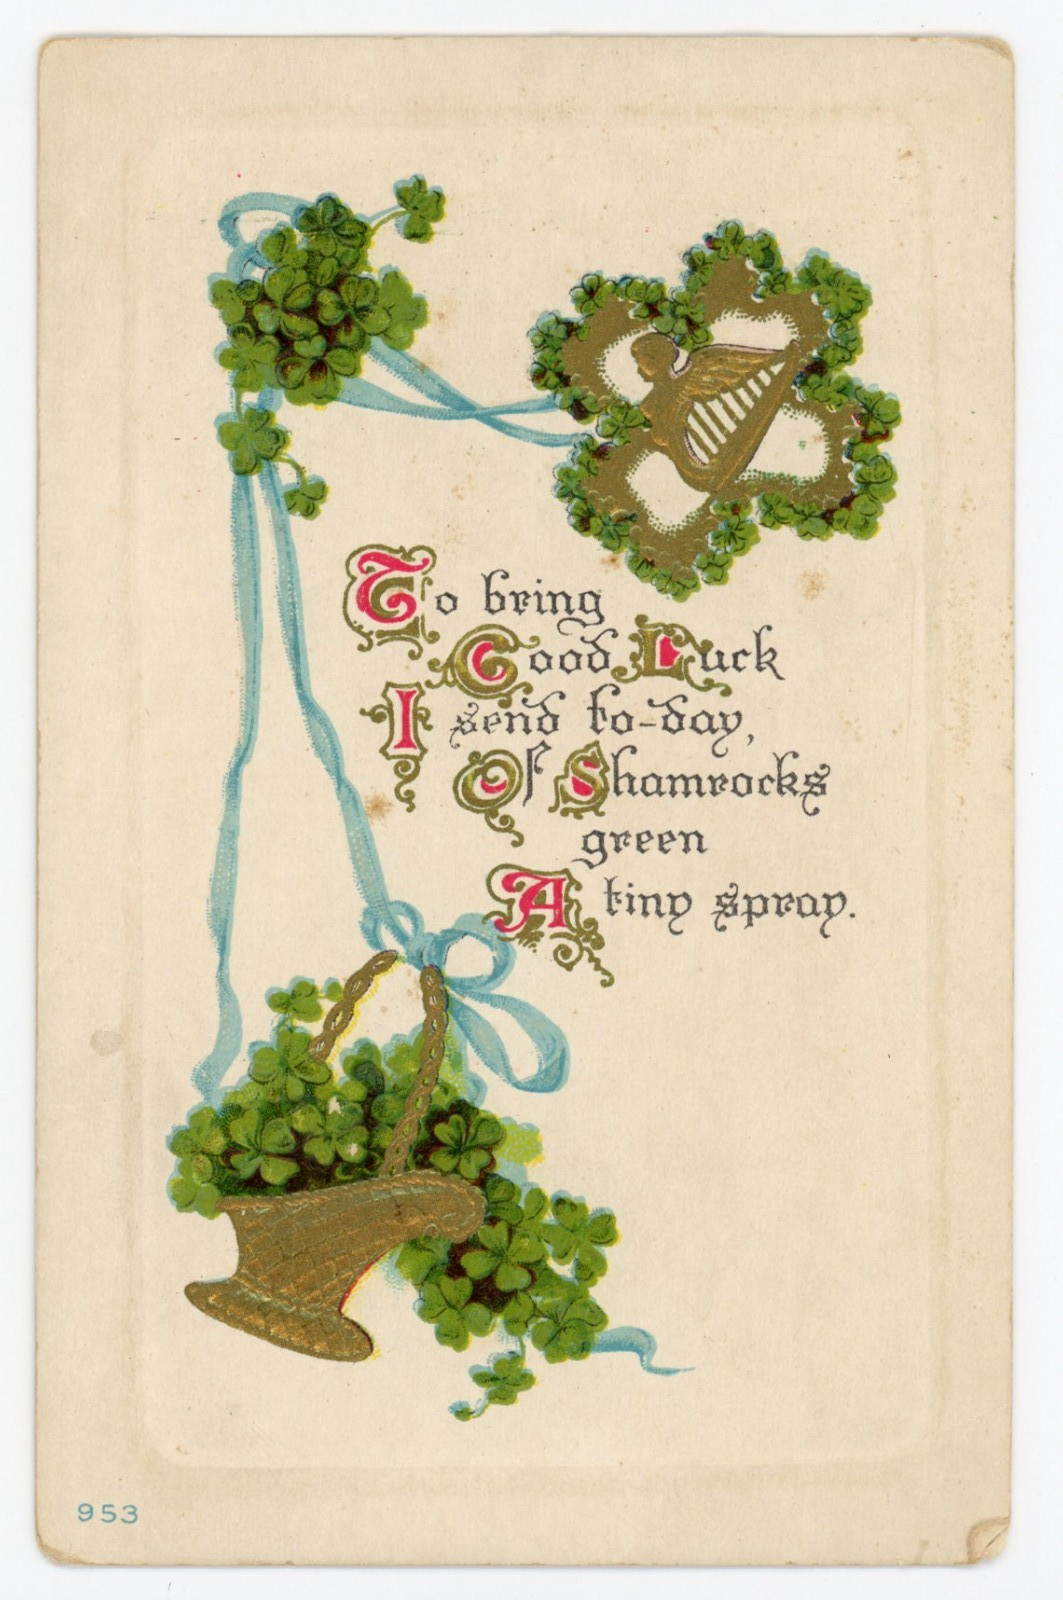 To bring
Good Luck
I send to-day,
Of Shamrocks
green
A tiny spray.
953